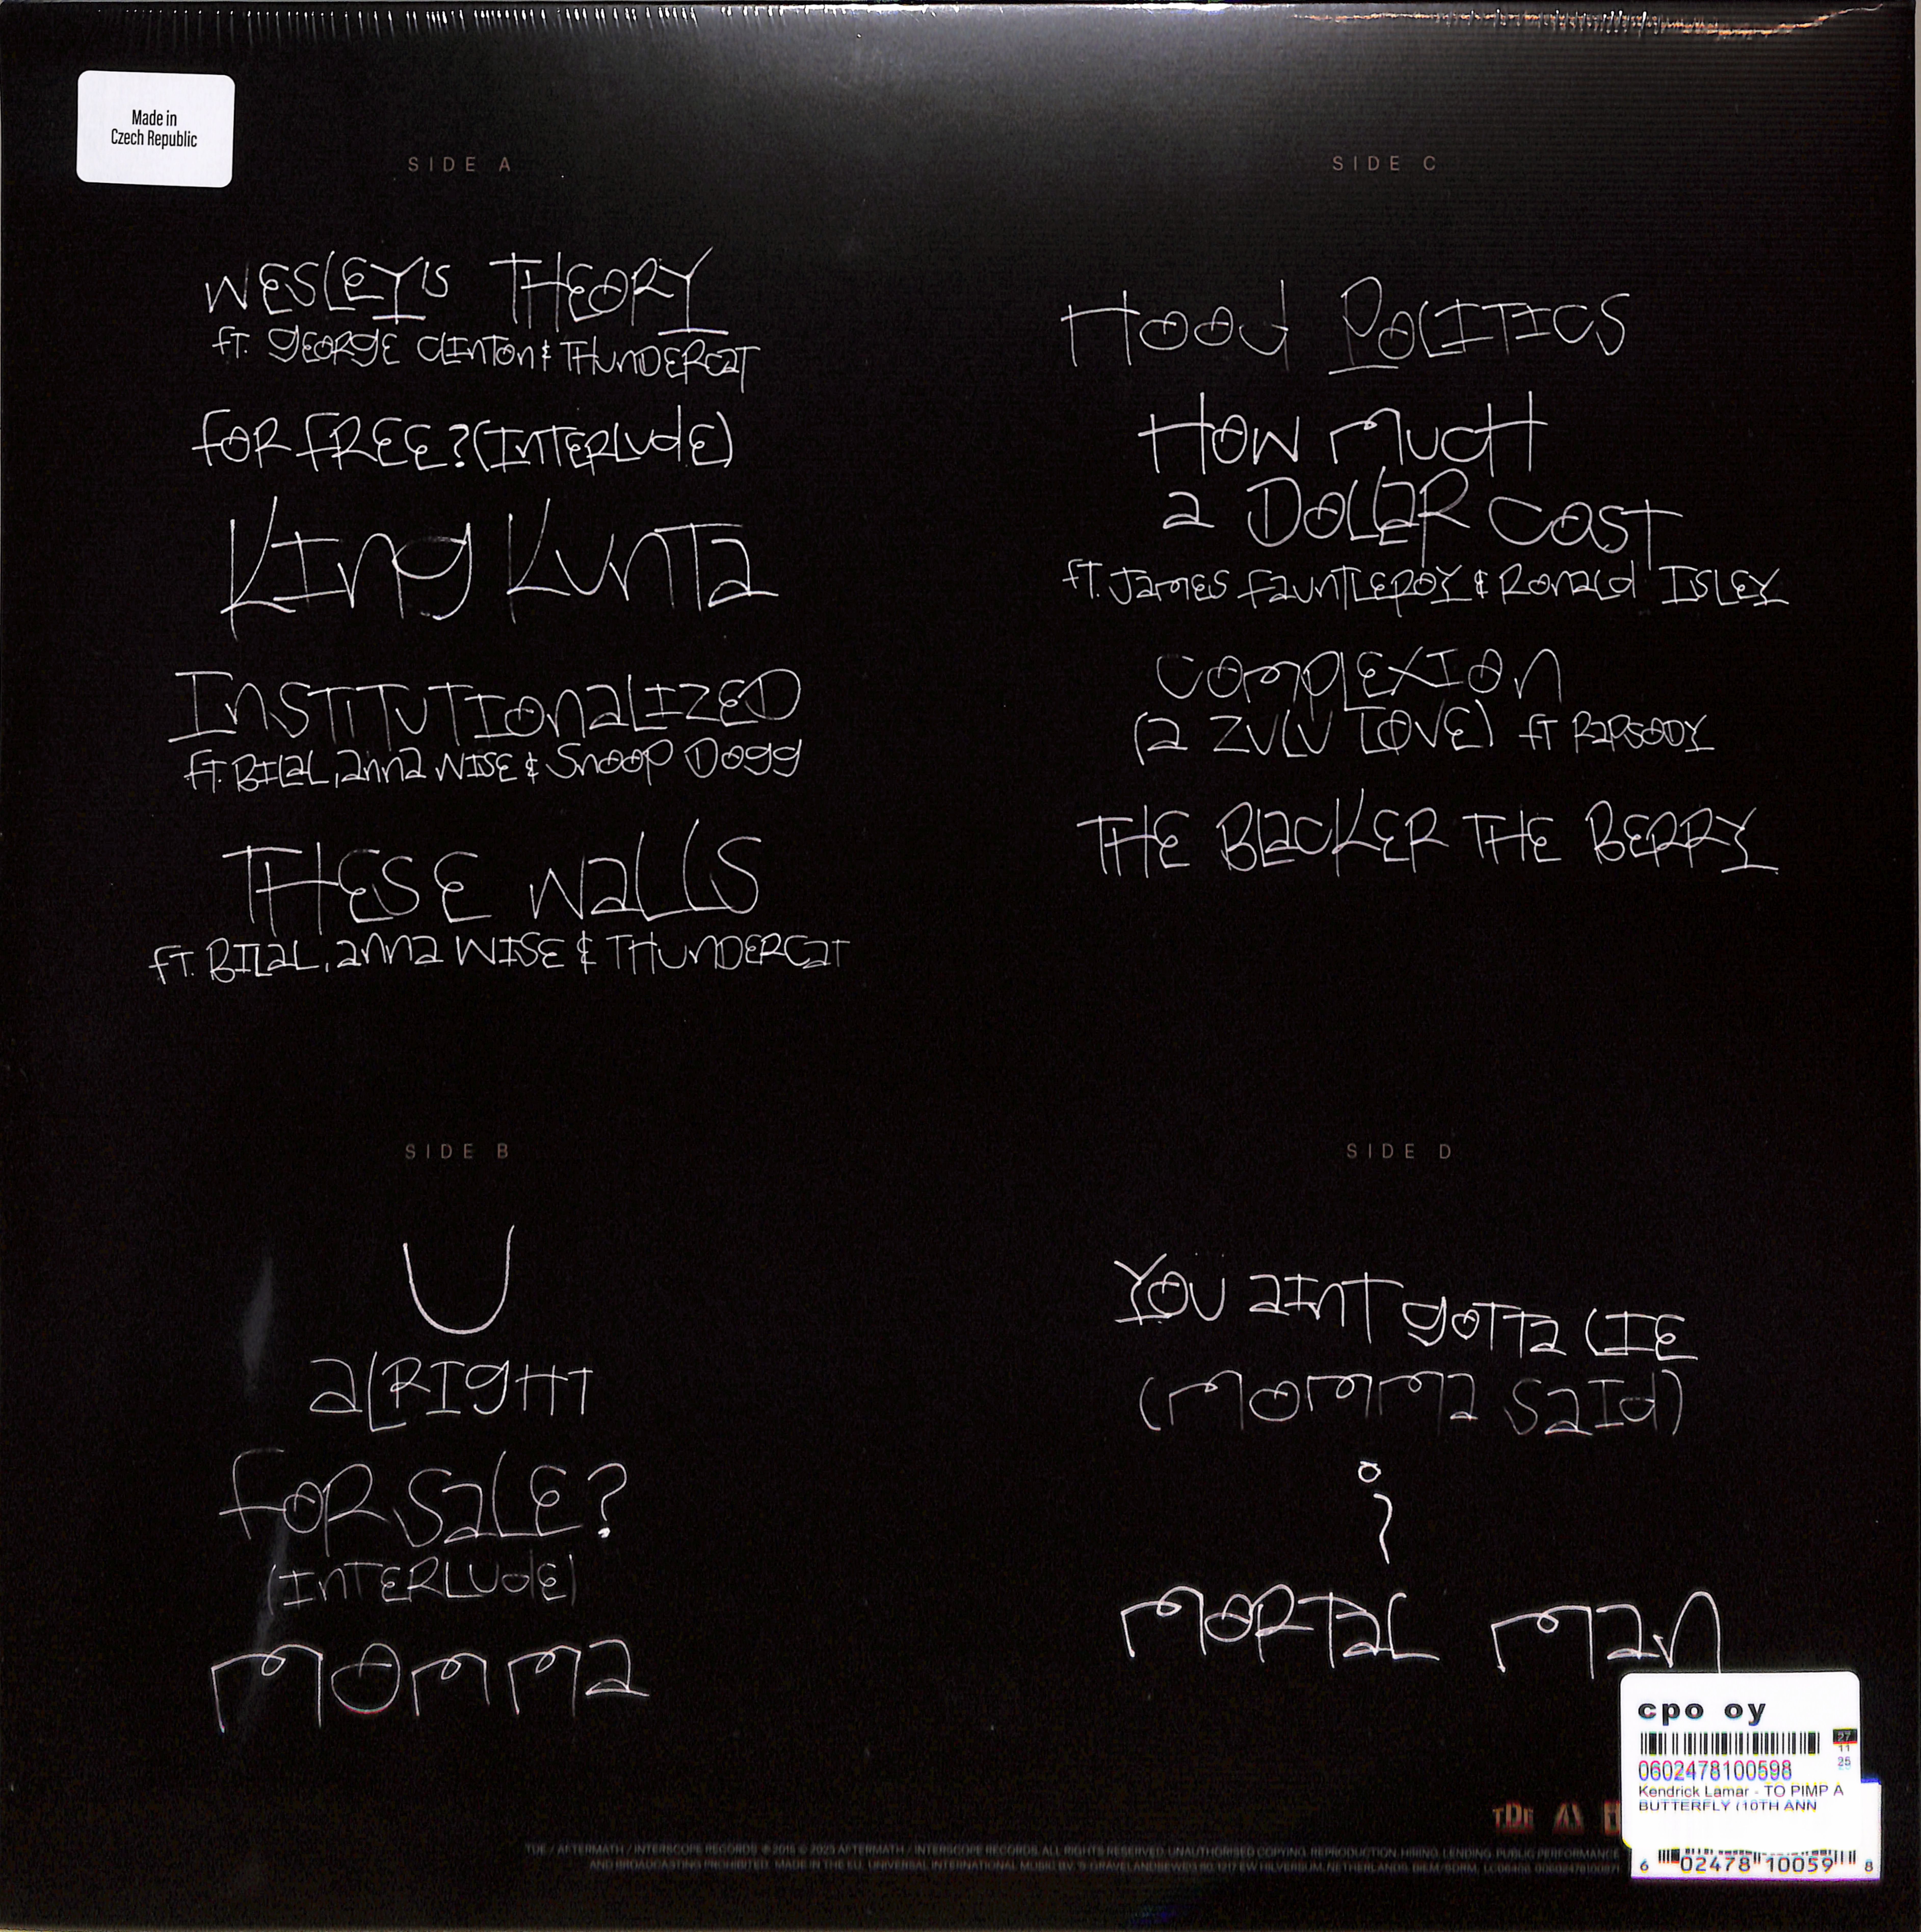 Made in
Czech Republic
SIDE A
WESLEY'S THEORY
ft. GEORGE CLINTON & THUNDERCAT
FOR FREE? (INTERLUDE)
KING KUNTA
INSTITUTIONALIZED
ft. BILAL, ANNA WISE & SNOOP DOGG
THESE WALLS
ft. BILAL, ANNA WISE & THUNDERCAT
SIDE B
U
ALRIGHT
FOR SALE?
(INTERLUDE)
MOMMA
SIDE C
HOOD POLITICS
HOW MUCH
A DOLLAR COST
ft. JAMES FAUNTLEROY & RONALD ISLEY
COMPLEXION
(A ZULU LOVE) ft RAPSODY
THE BLACKER THE BERRY
SIDE D
YOU AINT GOTTA LIE
(MOMMA SAID)
i
MORTAL MAN
cpo oy
27
11
25
0602478100598
Kendrick Lamar - TO PIMP A
BUTTERFLY (10TH ANN
6 02478 10059 8
TDE
TDE / AFTERMATH / INTERSCOPE RECORDS ℗ 2015 © 2025 AFTERMATH / INTERSCOPE RECORDS. ALL RIGHTS RESERVED. UNAUTHORISED COPYING, REPRODUCTION, HIRING, LENDING, PUBLIC PERFORMANCE
AND BROADCASTING PROHIBITED. MADE IN THE EU. UNIVERSAL INTERNATIONAL MUSIC B.V.